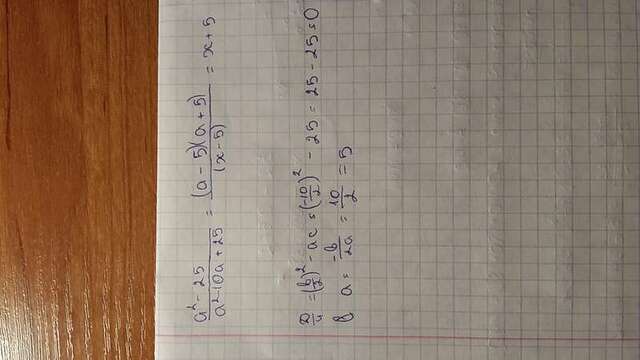 a² - 25 / a² - 10a + 25 = (a - 5)(a + 5) / (x - 5) = x + 5
D/4 = (b/2)² - ac = (-10/2)² - 25 = 25 - 25 = 0
a = -b/2a = 10/2 = 5